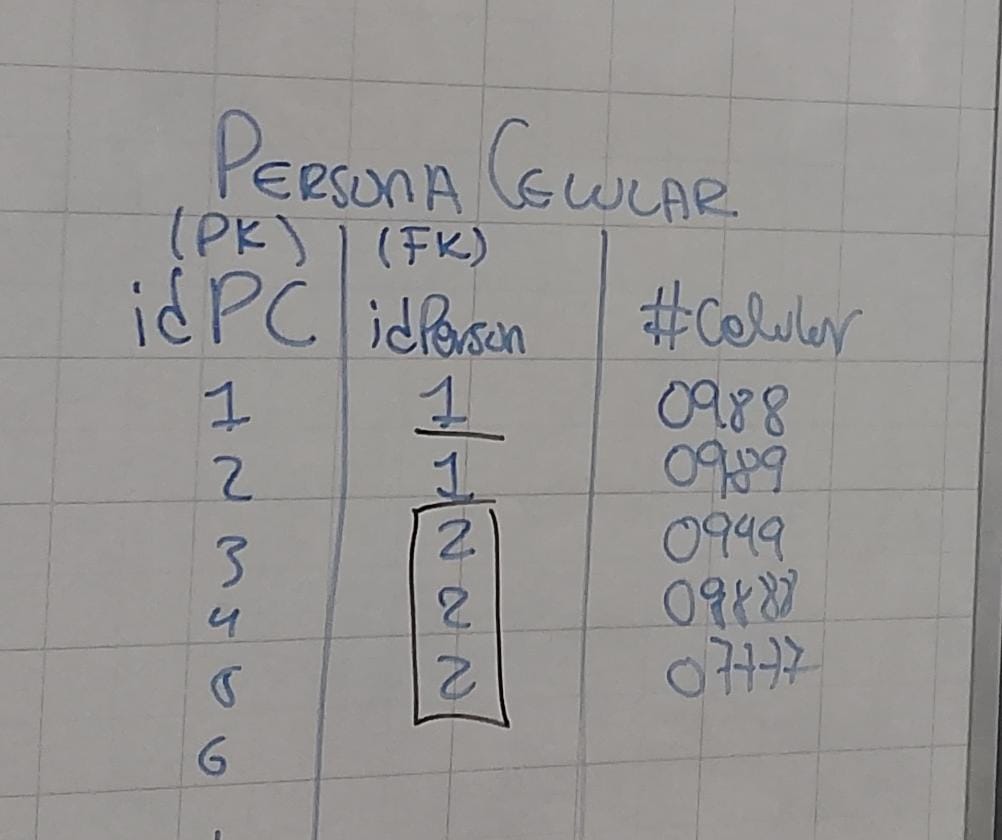 PERSONA CELULAR
(PK) (FK)
idPC idPerson #Celular
1 1 0988
2 1 0989
3 2 0949
4 2 09888
5 2 07777
6